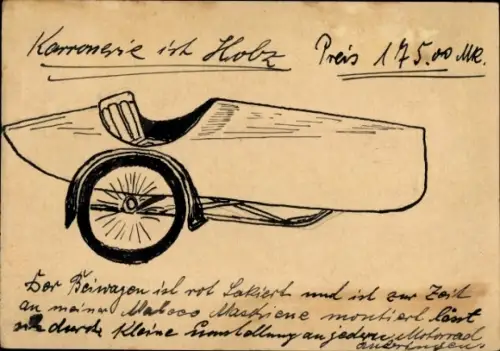 Karronerie ist Holz Preis 175.00 Mk.
Der Beiwagen ist rot Lakiert und ist zur Zeit
an meiner Mabeco Maschiene montiert läst
sich durch kleine Umstellung an jedem Motorrad
anbringen.